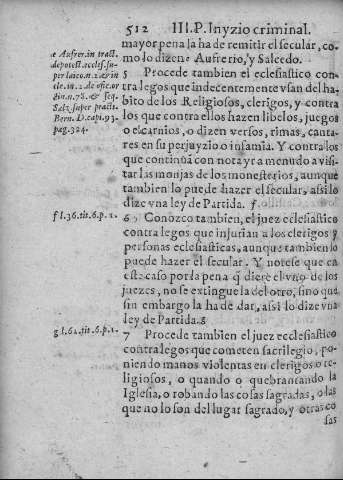 512 III. P. Inyzio criminal.
mayor pena la ha de remitir el secular, co-
mo lo dizen e Aufrerio, y Salcedo.
5 Procede tambien el eclesiastico con-
tra legos que indecentemente vsan del ha-
bito de los Religiosos, clerigos, y contra
los que contra ellos hazen libelos, juegos
o escarnios, o dizen versos, rimas, canta-
res en su perjuyzio o infamia. Y contra los
que continuā con nota yr a menudo a visi-
tar las monjas de los monesterios, aunque
tambien lo puede hazer el secular, assi lo
dize vna ley de Partida. f.
6 Conozco tambien, el juez eclesiastico
contra legos que injurian a los clerigos y
personas eclesiasticas, aunque tambien lo
puede hazer el secular. Y notese que en
este caso por la pena q̄ diere el vno de los
juezes, no se extingue la del otro, sino que
sin embargo la ha de dar, assi lo dize vna
ley de Partida. g
7 Procede tambien el juez eclesiastico
contra legos que cometen sacrilegio, po-
niendo manos violentas en clerigos o re-
ligiosos, o quando o quebrantando la
Iglesia, o robando las cosas sagradas, o las
que no lo son del lugar sagrado, y otras co
sas
e Aufrer. in tract.
de potest. eccles. su-
per laico. n. 2. & in
cle. in. 2. de offic. or
din. n. 78. & seq.
Salz. super pract.
Bern. D. capi. 93.
pag. 324.
f l. 36. tit. 6. p. 1.
g l. 62. tit. 6. p. 1.